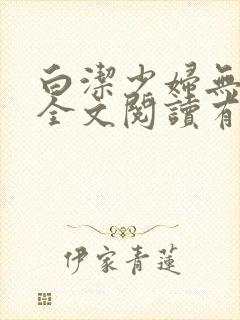 白潔少婦無
全文閱讀有
伊家青蓮